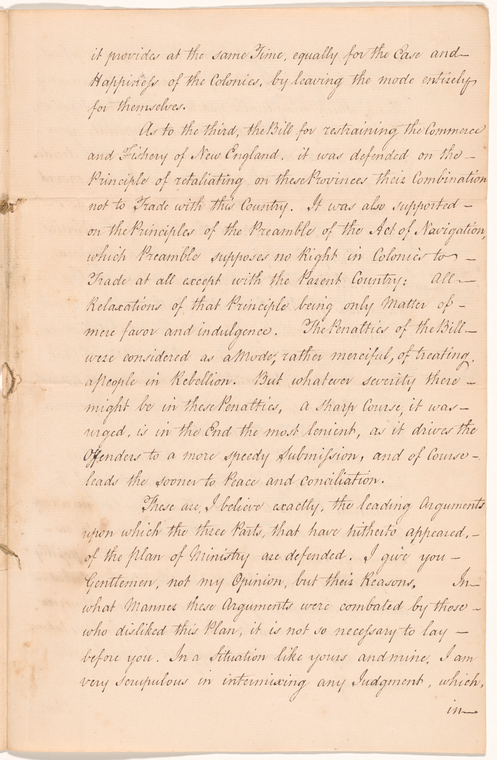 it provides at the same Time, equally for the Ease and—
Happiness of the Colonies, by leaving the mode entirely
for themselves.
As to the third, the Bill for restraining the Commerce
and Fishery of New England. it was defended on the—
Principle of retaliating on these Provinces their Combination
not to Trade with this Country. It was also supported—
on the Principles of the Preamble of the Act of Navigation,
which Preamble supposes no Right in Colonies to—
Trade at all except with the Parent Country; All—
Relaxations of that Principle being only Matter of—
mere favor and indulgence. The Penalties of the Bill—
were considered as a Mode, rather merciful, of treating
a People in Rebellion. But whatever severity there—
might be in these Penalties, a sharp Course, it was—
urged, is in the End the most lenient, as it drives the
Offenders to a more speedy Submission, and of Course—
leads the sooner to Peace and conciliation.
These are, I believe exactly, the leading Arguments
upon which the three Parts, that have hitherto appeared,—
of the plan of Ministry are defended. I give you—
Gentlemen, not my Opinion, but their Reasons. In—
what Manner these Arguments were combated by those—
who disliked this Plan, it is not so necessary to lay—
before you. In a Situation like yours and mine, I am
very scrupulous in intermixing any Judgment, which,
in—